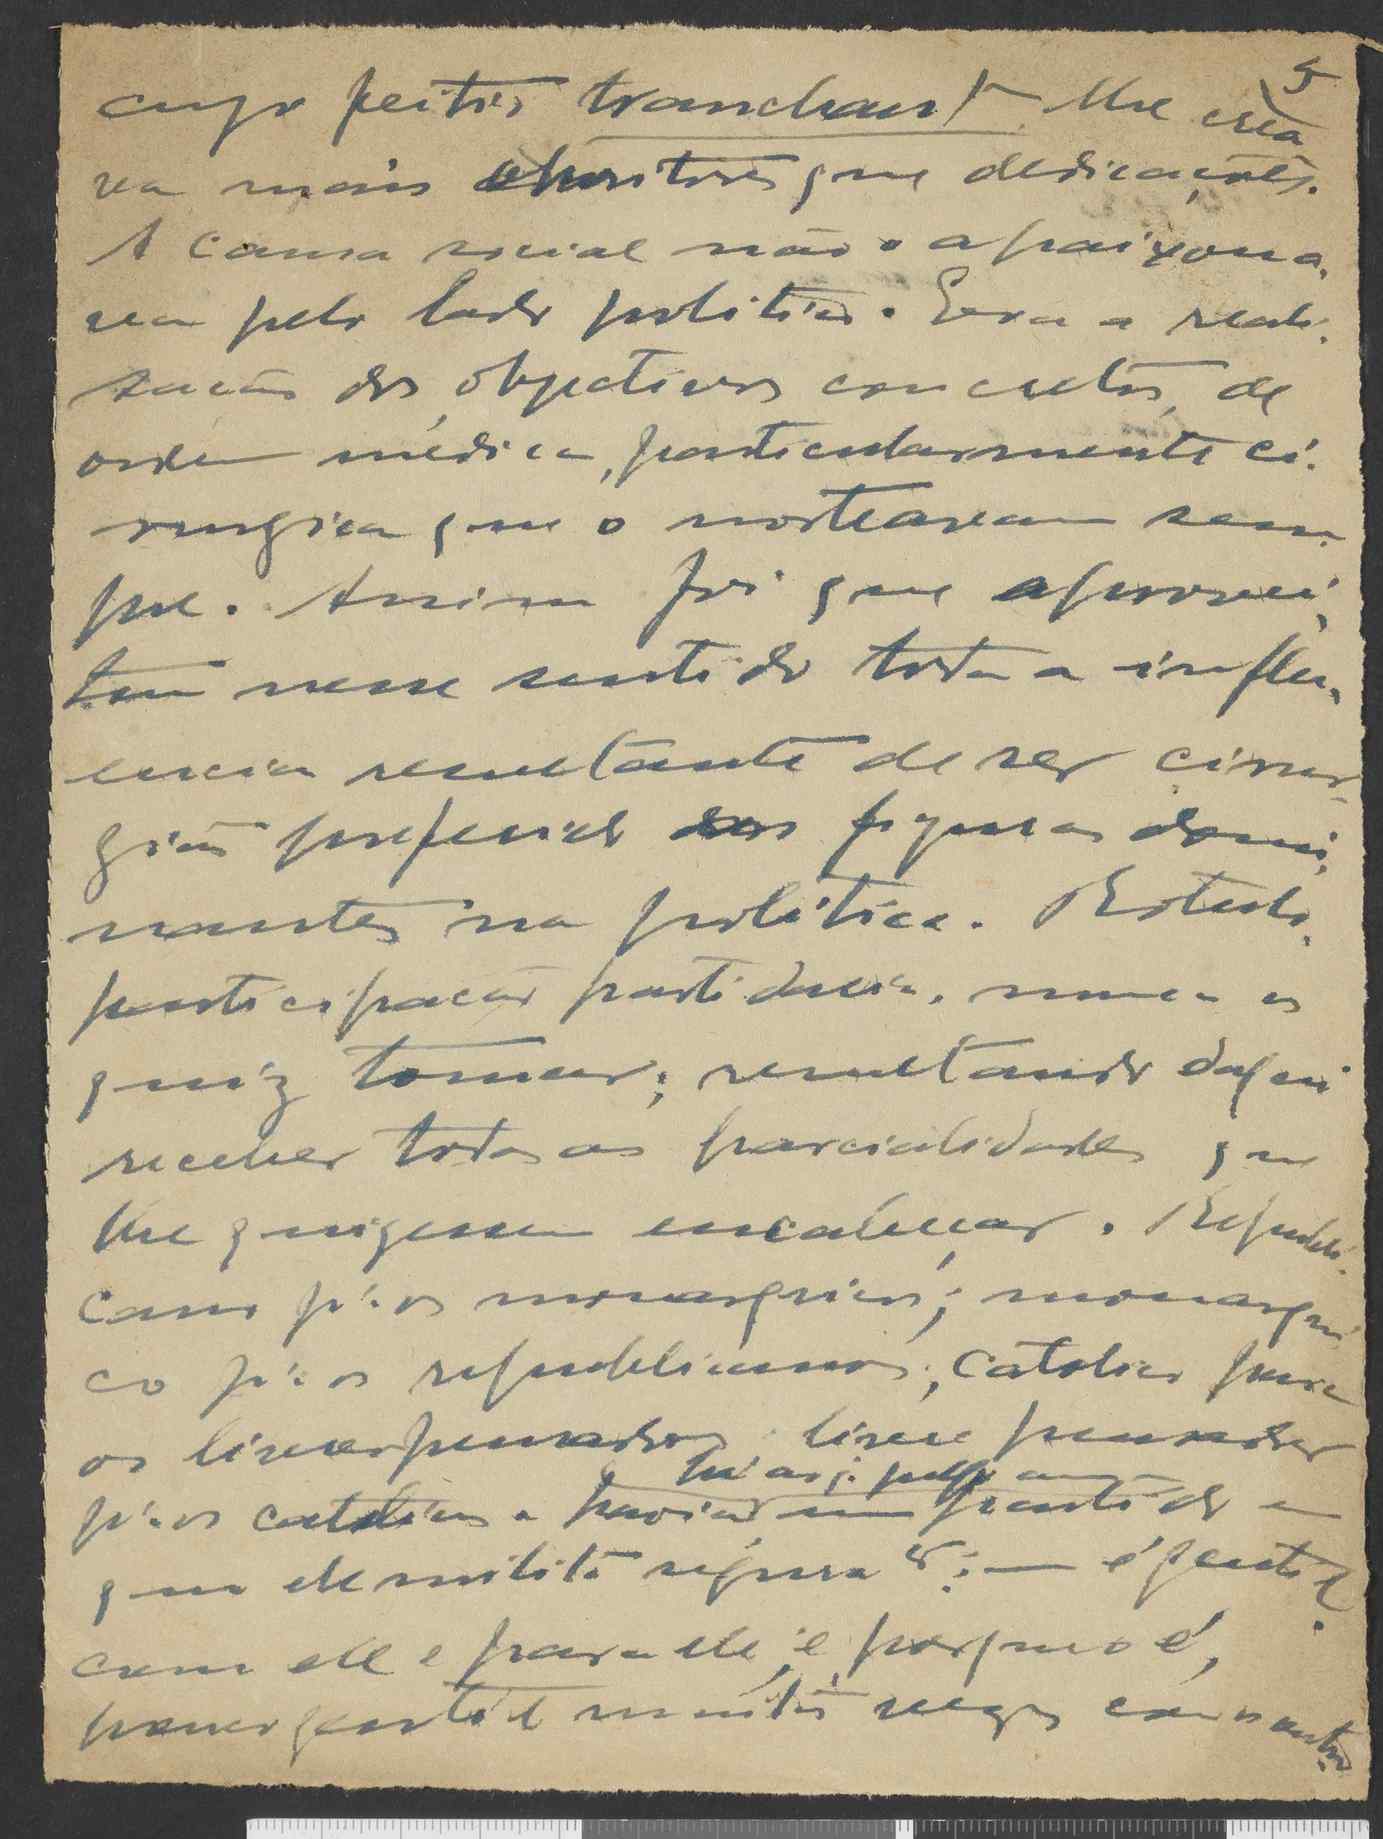 5
cujo feitio tranchant lhe crea
va mais que dedicações.
A causa social não o apaixona-
va pelo lado politico. Era a reali-
sação dos objectivos concretos, de
ordem médica, particularmente ci-
rurgica que o norteavam sem-
pre. Assim foi que aprovei-
tou nesse sentido toda a influ-
encia resultante de ser cirur-
gião preferido das figuras domi-
nantes na politica.
participação partidaria, nunca as
quiz tomar; resultando daqui
receber todas as parcialidades que
lhe quizessem encabeçar. Republi-
cano p.ª os monarquicos; monarqui
co p.ª os republicanos; catolico para
os livres pensadores, livre pensador
p.ª os catolicos. havia um partido em
que ele milita : — é gentil
com ele e para ele, e, porque o é,
parece gentil muitas vezes com os outros